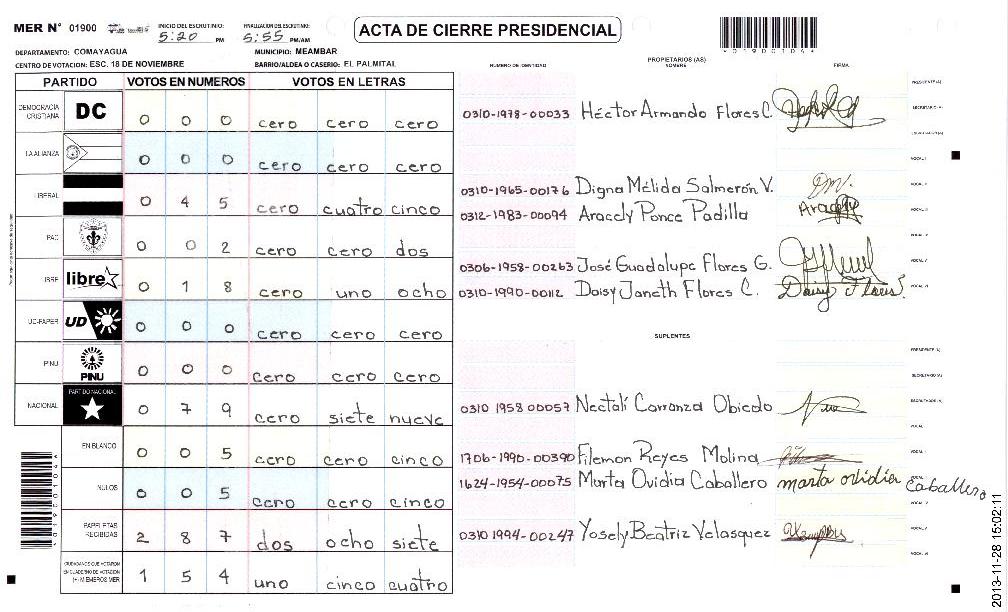 MER N° 01900
INICIO DEL ESCRUTINIO: 5:20 PM
FINALIZACION DEL ESCRUTINIO: 5:55 PM/AM
ACTA DE CIERRE PRESIDENCIAL
DEPARTAMENTO: COMAYAGUA
MUNICIPIO: MEAMBAR
CENTRO DE VOTACION: ESC. 18 DE NOVIEMBRE
BARRIO/ALDEA O CASERIO: EL PALMITAL
PARTIDO VOTOS EN NUMEROS VOTOS EN LETRAS
DEMOCRACIA CRISTIANA DC 0 0 0 cero cero cero
LA ALIANZA 0 0 0 cero cero cero
LIBERAL 0 4 5 cero cuatro cinco
PAC 0 0 2 cero cero dos
LIBRE libre 0 1 8 cero uno ocho
UD-FAPER UD 0 0 0 cero cero cero
PINU PINU 0 0 0 cero cero cero
NACIONAL PARTIDO NACIONAL 0 7 9 cero siete nueve
EN BLANCO 0 0 5 cero cero cinco
NULOS 0 0 5 cero cero cinco
PAPELETAS RECIBIDAS 2 8 7 dos ocho siete
CIUDADANOS QUE VOTARON EN CUADERNO DE VOTACION (+) MIEMBROS MER 1 5 4 uno cinco cuatro
NUMERO DE IDENTIDAD
PROPIETARIOS (AS)
NOMBRE
FIRMA
PRESIDENTE (A)
0310-1978-00033 Héctor Armando Flores C. SECRETARIO (A)
ESCRUTADOR (A)
VOCAL I
0310-1965-00176 Digna Mélida Salmerón V. VOCAL II
0312-1983-00094 Aracely Ponce Padilla Aracely VOCAL III
VOCAL IV
0306-1958-00263 José Guadalupe Flores G. VOCAL V
0310-1990-00112 Daisy Janeth Flores C. Daisy Flores. VOCAL VI
SUPLENTES
PRESIDENTE (A)
SECRETARIO (A)
0310 1958 00057 Nectalí Carranza Obiedo ESCRUTADOR (A)
VOCAL I
1706-1990-00390 Filemon Reyes Molina
1624-1954-00075 Marta Ovidia Caballero marta ovidia caballero
0310 1994-00247 Yosely Beatriz Velasquez VOCAL V
VOCAL VI
2013-11-28 15:02:11